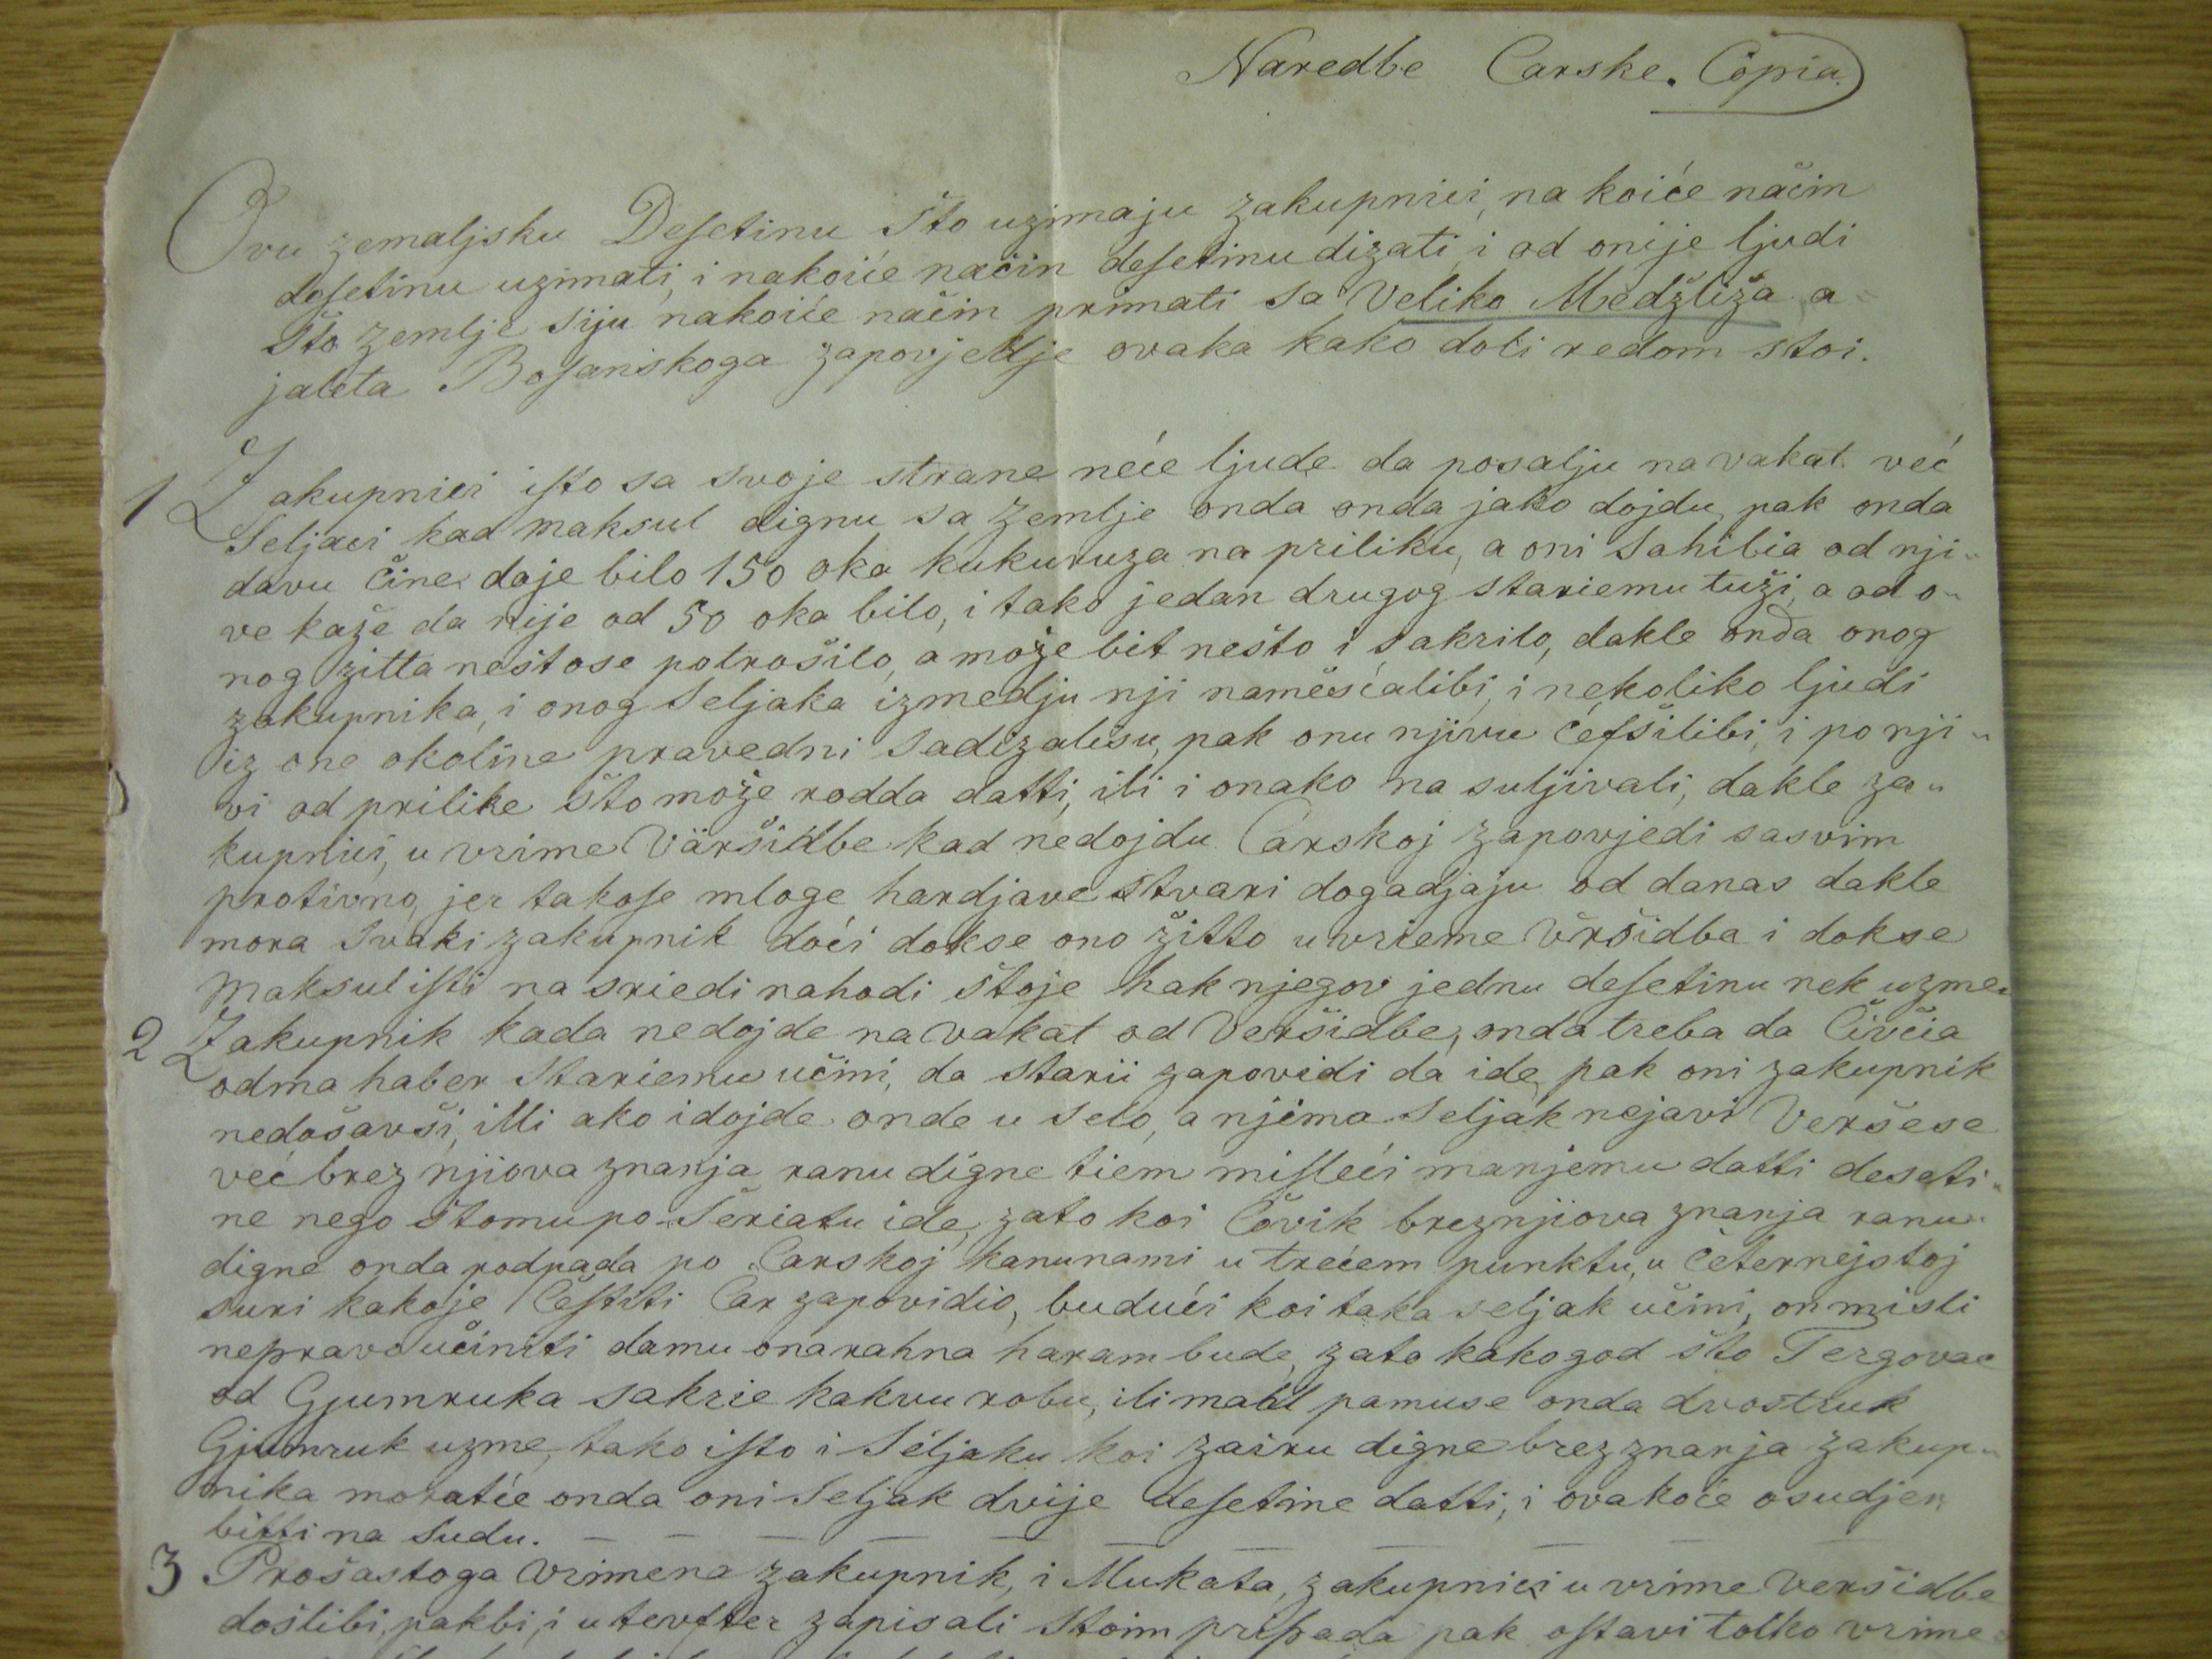 Naredbe Carske. Copia.
Ovu zemaljsku Desetinu što uzimaju zakupnici, na koiće način
desetinu uzimati, i nakoiće način desetinu dizati, i od onije ljudi
što zemlje siju nakoiće način primati sa Veliko Medžliža a„
jaleta Bosanskoga zapovjedje ovaka kako doli redom stoi.
1 Zakupnici isto sa svoje strane neće ljude da posalju na vakat već
Seljaci kad maksul dignu sa zemlje onda onda jako dojdu, pak onda
davu čine daje bilo 150 oka kukuruza na priliku, a oni Sahibia od nji„
ve kaže da nije od 50 oka bilo, i tako jedan drugog stariemu tuži, a od o„
nog zitta neštose potrošilo, a može bit nešto i sakrilo, dakle onda onog
zakupnika, i onog Seljaka izmedju nji naměsćalibi, i nekoliko ljudi
iz one okoline pravedni sadizalisu, pak onu njivu ćefsilibi, i po nji„
vi od prilike što može rodda datti, ili i onako na suljivali, dakle za„
kupnici, u vrime Väršidbe kad nedojdu Carskoj zapovjedi sasvim
protivno, jer takose mloge hardjave stvari dogadjaju od danas dakle
mora svaki zakupnik doći dokse ono žitto u vrieme Vršidba i dokse
Maksul isti na sriedi nahodi štoje hak njegov jednu desetinu nek uzme.
2 Zakupnik kada nedojde na vakat od Veršidbe, onda treba da Čivčia
odma haber Stariemu učini, da starii zapovidi da ide, pak oni zakupnik
nedošavši, illi ako idojde onde u selo, a njima Seljak nejavi Veršese
već brez njiova znanja ranu digne tiem misleći manjemu datti deseti„
ne nego štomu po Šeriatu ide, zato koi Čovik breznjiova znanja ranu
digne onda podpada po Carskoj kanunami u trećem punktu, u četernejstoj
suri kakoje Čestiti Car zapovidio, budući koi taka seljak učini, on misli
nepravo učiniti damu ona rahna haram bude, zato kakogod što Tergovac
od Gjumruka sakrie kakvu robu, ili mahl pamuse onda dvostruk
Gjumruk uzme, tako isto i Seljaku koi zairu digne brez znanja zakup„
nika moratće onda oni Seljak dvije desetine datti, i ovakoće osudjen
bitti na Sudu.
3 Prošastoga Vrimena zakupnik, i Mukata, zakupnici u vrime Veršidbe
došlibi, pakbi, i u tevfter zapisali štoim pripada pak ostavi tolko vrime